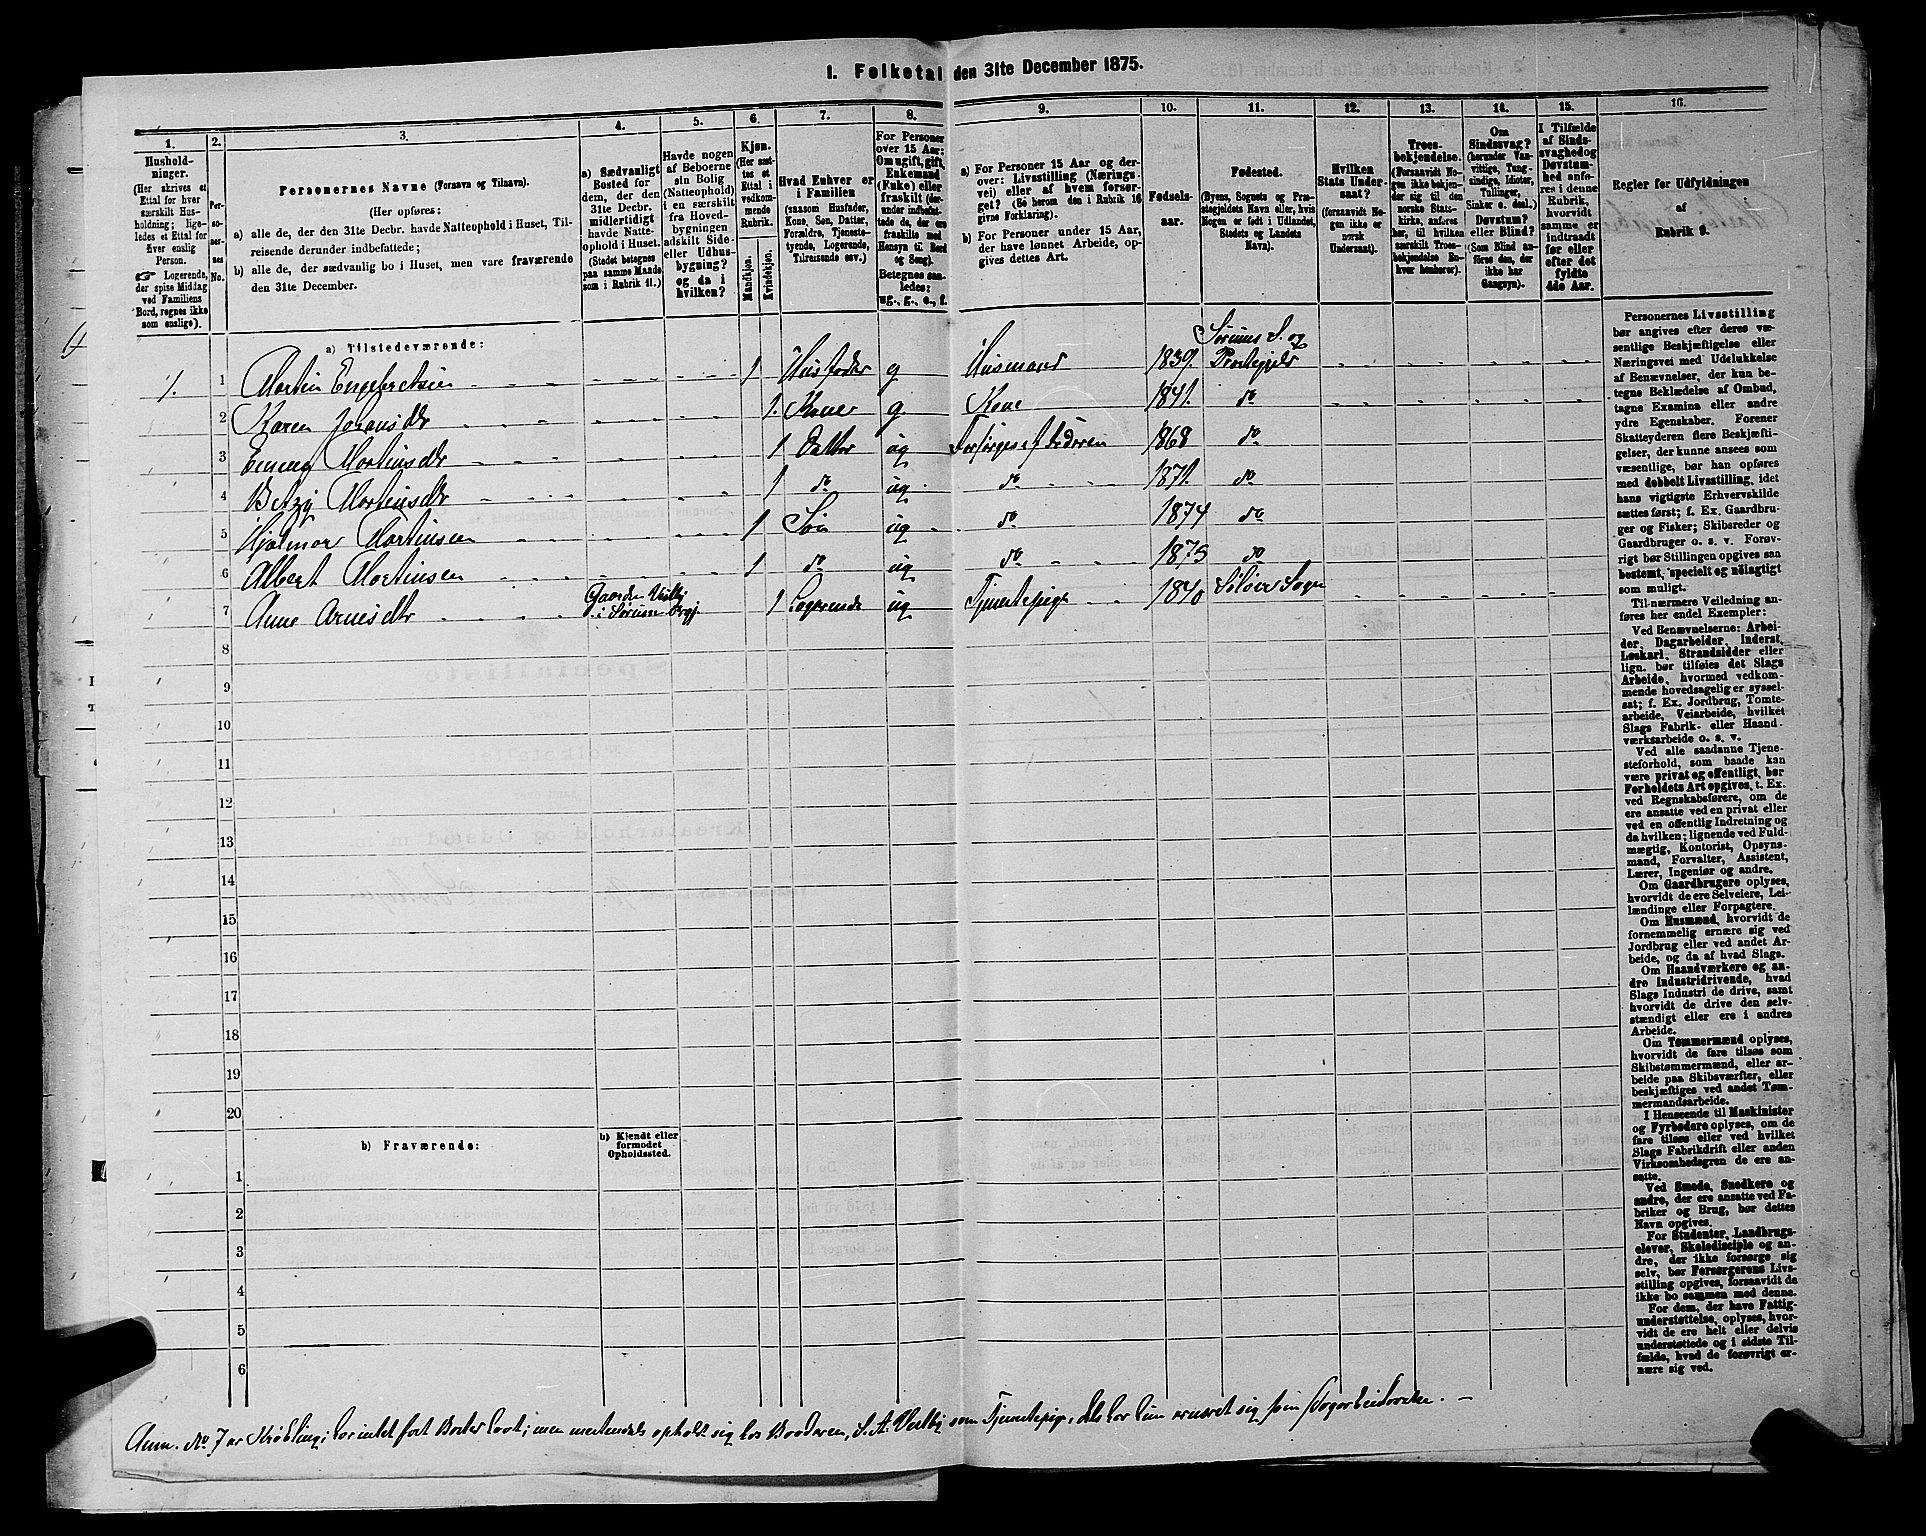 1. Folketal den 31te December 1875.
1. 2. 3. 4. 5. 6. 7. 8. 9. 10. 11. 12. 13. 14. 15. 16.
Hushold-
ninger.
(Her skrives et
Ettal for hver
særskilt Hus-
holdning; lige-
ledes et Ettal for
Ever enslig
Person.
☞ Logerende,
der spise Middag
ved Familiens
Bord, regnes ikke
som enslige).
Per-
so-
ner-
nes
No.
Personernes Navne (Fornavn og Tilnavn).
(Her opføres:
a) alle de, der den 31te Decbr. havde Natteophold i Huset, Til-
reisende derunder indbefattede;
b) alle de, der sædvanlig bo i Huset, men vare fraværende
den 31te December.
a) Sædvanligt
Bosted for
dem, der den
31te Decbr.
midlertidigt
havde Natte-
ophold i Huset.
(Stedet betegnes
paa samme Maade
som i Rubrik 11.)
Havde nogen
af Beboerne
sin Bolig
(Natteophold)
i en særskilt
fra Hoved-
bygningen
adskilt Side-
eller Udhus-
bygning?
og da i
hvilken?
Kjøn.
(Her sæt-
tes et
Ettal i
vedkom-
mende
Rubrik.
Mandkjøn.
Kvindekjøn.
Hvad Enhver er
i Familien
(saasom Husfader,
Kone, Søn, Datter,
Forældre, Tjeneste-
tyende, Logerende,
Tilreisende osv.)
For Personer
over 15 Aar:
Om ugift, gift,
Enkemand
(Enke) eller
fraskilt (der-
under indbefat-
tede de, der ere
fraskilte med
Hensyn til Bord
og Seng).
Betegnes saa-
ledes:
ug., g., e., f.
a) For Personer 15 Aar og der-
over: Livsstilling (Nærings-
vei) eller af hvem forsør-
get? (Se herom den i Rubrik 16
givne Forklaring).
b) For Personer under 15 Aar,
der have lønnet Arbeide, op-
gives dettes Art.
Fødsels-
aar.
Fødested.
(Byens, Sognets og Præ-
stegjeldets Navn eller, hvis
Nogen er født i Udlandet,
Stedets og Landets
Navn).
Hvilken
Stats Under-
saat?
(forsaavidt No-
gen ikke er
norsk
Undersaat).
Troes-
bekjendelse.
(Forsaavidt No-
gen ikke bekjen-
der sig til den
norske Stats-
kirke, anføres
her, til hvilken
særskilt Troes-
bekjendelse En-
hver henhører).
Om
Sindssvag?
(herunder Van-
vittige, Tung-
sindige, Idioter,
Tullinger,
Sinker o. desl.)
Døvstum?
eller Blind?
(Som Blind an-
føres den, der
ikke har
Gangsyn).
I Tilfælde
af Sinds-
svaghed og
Døvstum-
hed anfø-
res i denne
Rubrik,
hvorvidt
samme er
indtraadt
før eller
efter det
fyldte
4de Aar.
Regler for Udfyldningen
af
Rubrik 9.
a) Tilstedeværende:
1. 1 Martin Engebretsen 1 Husfader g Husmand 1839. Sørums S. og Præstegjeld
2 Karen Johansdtr 1. Kone g. Kone 1841. do
3 Emma Martinsdtr 1 Datter ug Forsørges af Faderen 1868 do
4 Betzy Martinsdtr 1 do ug. do 1871. do
5 Hjalmar Martinsen 1 Søn ug do 1874 do
6 Albert Martinsen 1 do ug do 1875 do
7 Anne Arnesdtr Gaarden i Sørum 1 Logerende ug Tjenestepige 1840 Sogn
8
9
10
11
12
13
14
15
16
17
18
19
20
b) Fraværende:
b) Kjendt eller
formodet
Opholdssted.
1
2
3
4
5
6
Personernes Livsstilling
bør angives efter deres væ-
sentlige Beskjæftigelse eller
Næringsvei med Udelukkelse
af Benævnelser, der kun be-
tegne Beklædelse af Ombud,
tagne Examina eller andre
ydre Egenskaber. Forener
Skatteyderen flere Beskjæfti-
gelser, der kunne ansees som
væsentlige, bør han opføres
med dobbelt Livsstilling, idet
hans vigtigste Erhvervskilde
sættes først; f. Ex. Gaardbru-
ger og Fisker; Skibsreder og
Gaardbruger o. s. v. Forøv-
rigt bør Stillingen opgives saa
bestemt, specielt og nøiagtigt
som muligt.
Til nærmere Veiledning an-
føres her endel Exempler:
Ved Benævnelserne: Arbei-
der, Dagarbeider, Inderst,
Løskarl, Strandsidder eller
lign. bør tilføies det Slags
Arbeide, hvormed vedkom-
mende hovedsagelig er syssel-
sat; f. Ex. Jordbrug, Tomte-
arbeide, Veiarbeide, hvilket
Slags Fabrik- eller Haand-
værksarbeide o. s. v.
Ved alle saadanne Tjene-
steforhold, som baade kan
være privat og offentligt, bør
Forholdets Art opgives, t. Ex.
ved Regnskabsførere, om de
ere ansatte ved en privat eller
ved en offentlig Indretning og
da hvilken; lignende ved Fuld-
mægtig, Kontorist, Opsyns-
mand, Forvalter, Assistent,
Lærer, Ingeniør og andre.
Om Gaardbrugere oplyses,
hvorvidt de ere Selveiere, Lei-
lændinge eller Forpagtere.
Om Husmænd, hvorvidt de
fornemmelig ernære sig ved
Jordbrug eller ved andet Ar-
beide, og da af hvad Slags.
Om Haandværkere og an-
dre Industridrivende, hvad
Slags Industri de drive, samt
hvorvidt de drive den selv-
stændigt eller ere i andres
Arbeide.
Om Tømmermænd oplyses,
hvorvidt de fare tilsøs som
Skibstømmermænd, eller ar-
beide paa Skibsværfter, eller
beskjæftiges ved andet Tøm-
mermandsarbeide.
I Henseende til Maskinister
og Fyrbødere oplyses, om de
fare tilsøs eller ved hvilket
Slags Fabrikdrift eller anden
Virksomhedsgren de ere an-
satte.
Ved Smede, Snedkere og
andre, der ere ansatte ved Fa-
briker og Brug, bør dettes
Navn opgives.
For Studenter, Landbrugs-
elever, Skoledisciple og an-
dre, der ikke forsørge sig
selv, bør Forsørgerens Livs-
stilling opgives, forsaavidt de
ikke bo sammen med denne.
For dem, der have Fattig-
understøttelse, oplyses, hvor-
vidt de ere helt eller delvis
understøttede og i sidste Til-
fælde, hvad de forøvrigt er-
nære sig ved.
Anm. No 7 er har intet fast men opholdt sig hos Broderen, som Tjenestepige, dels har hun ernæret sig som